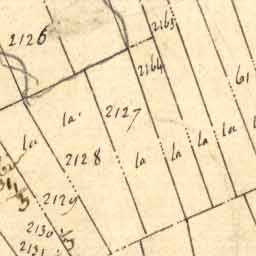 2126
2165
2164
61
la
2127
la
2128
la
la
la
la
2129
2130
2131